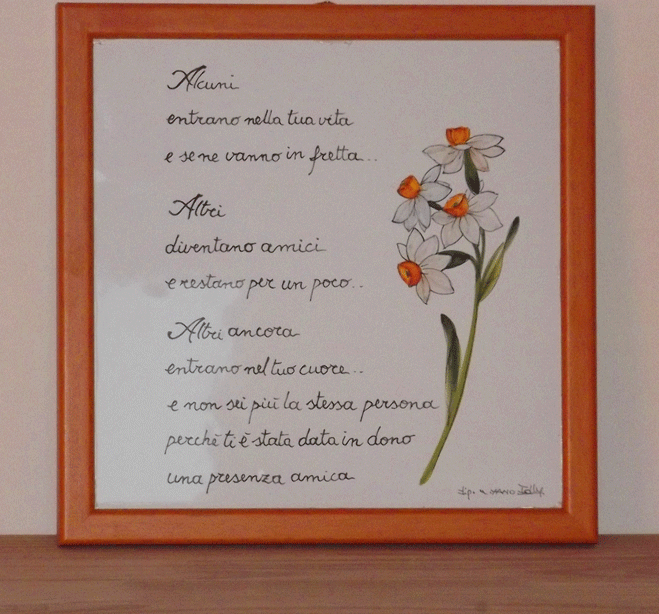 Alcuni
entrano nella tua vita
e se ne vanno in fretta...
Altri
diventano amici
e restano per un poco...
Altri ancora
entrano nel tuo cuore...
e non sei più la stessa persona
perchè ti è stata data in dono
una presenza amica
Dip. a mano